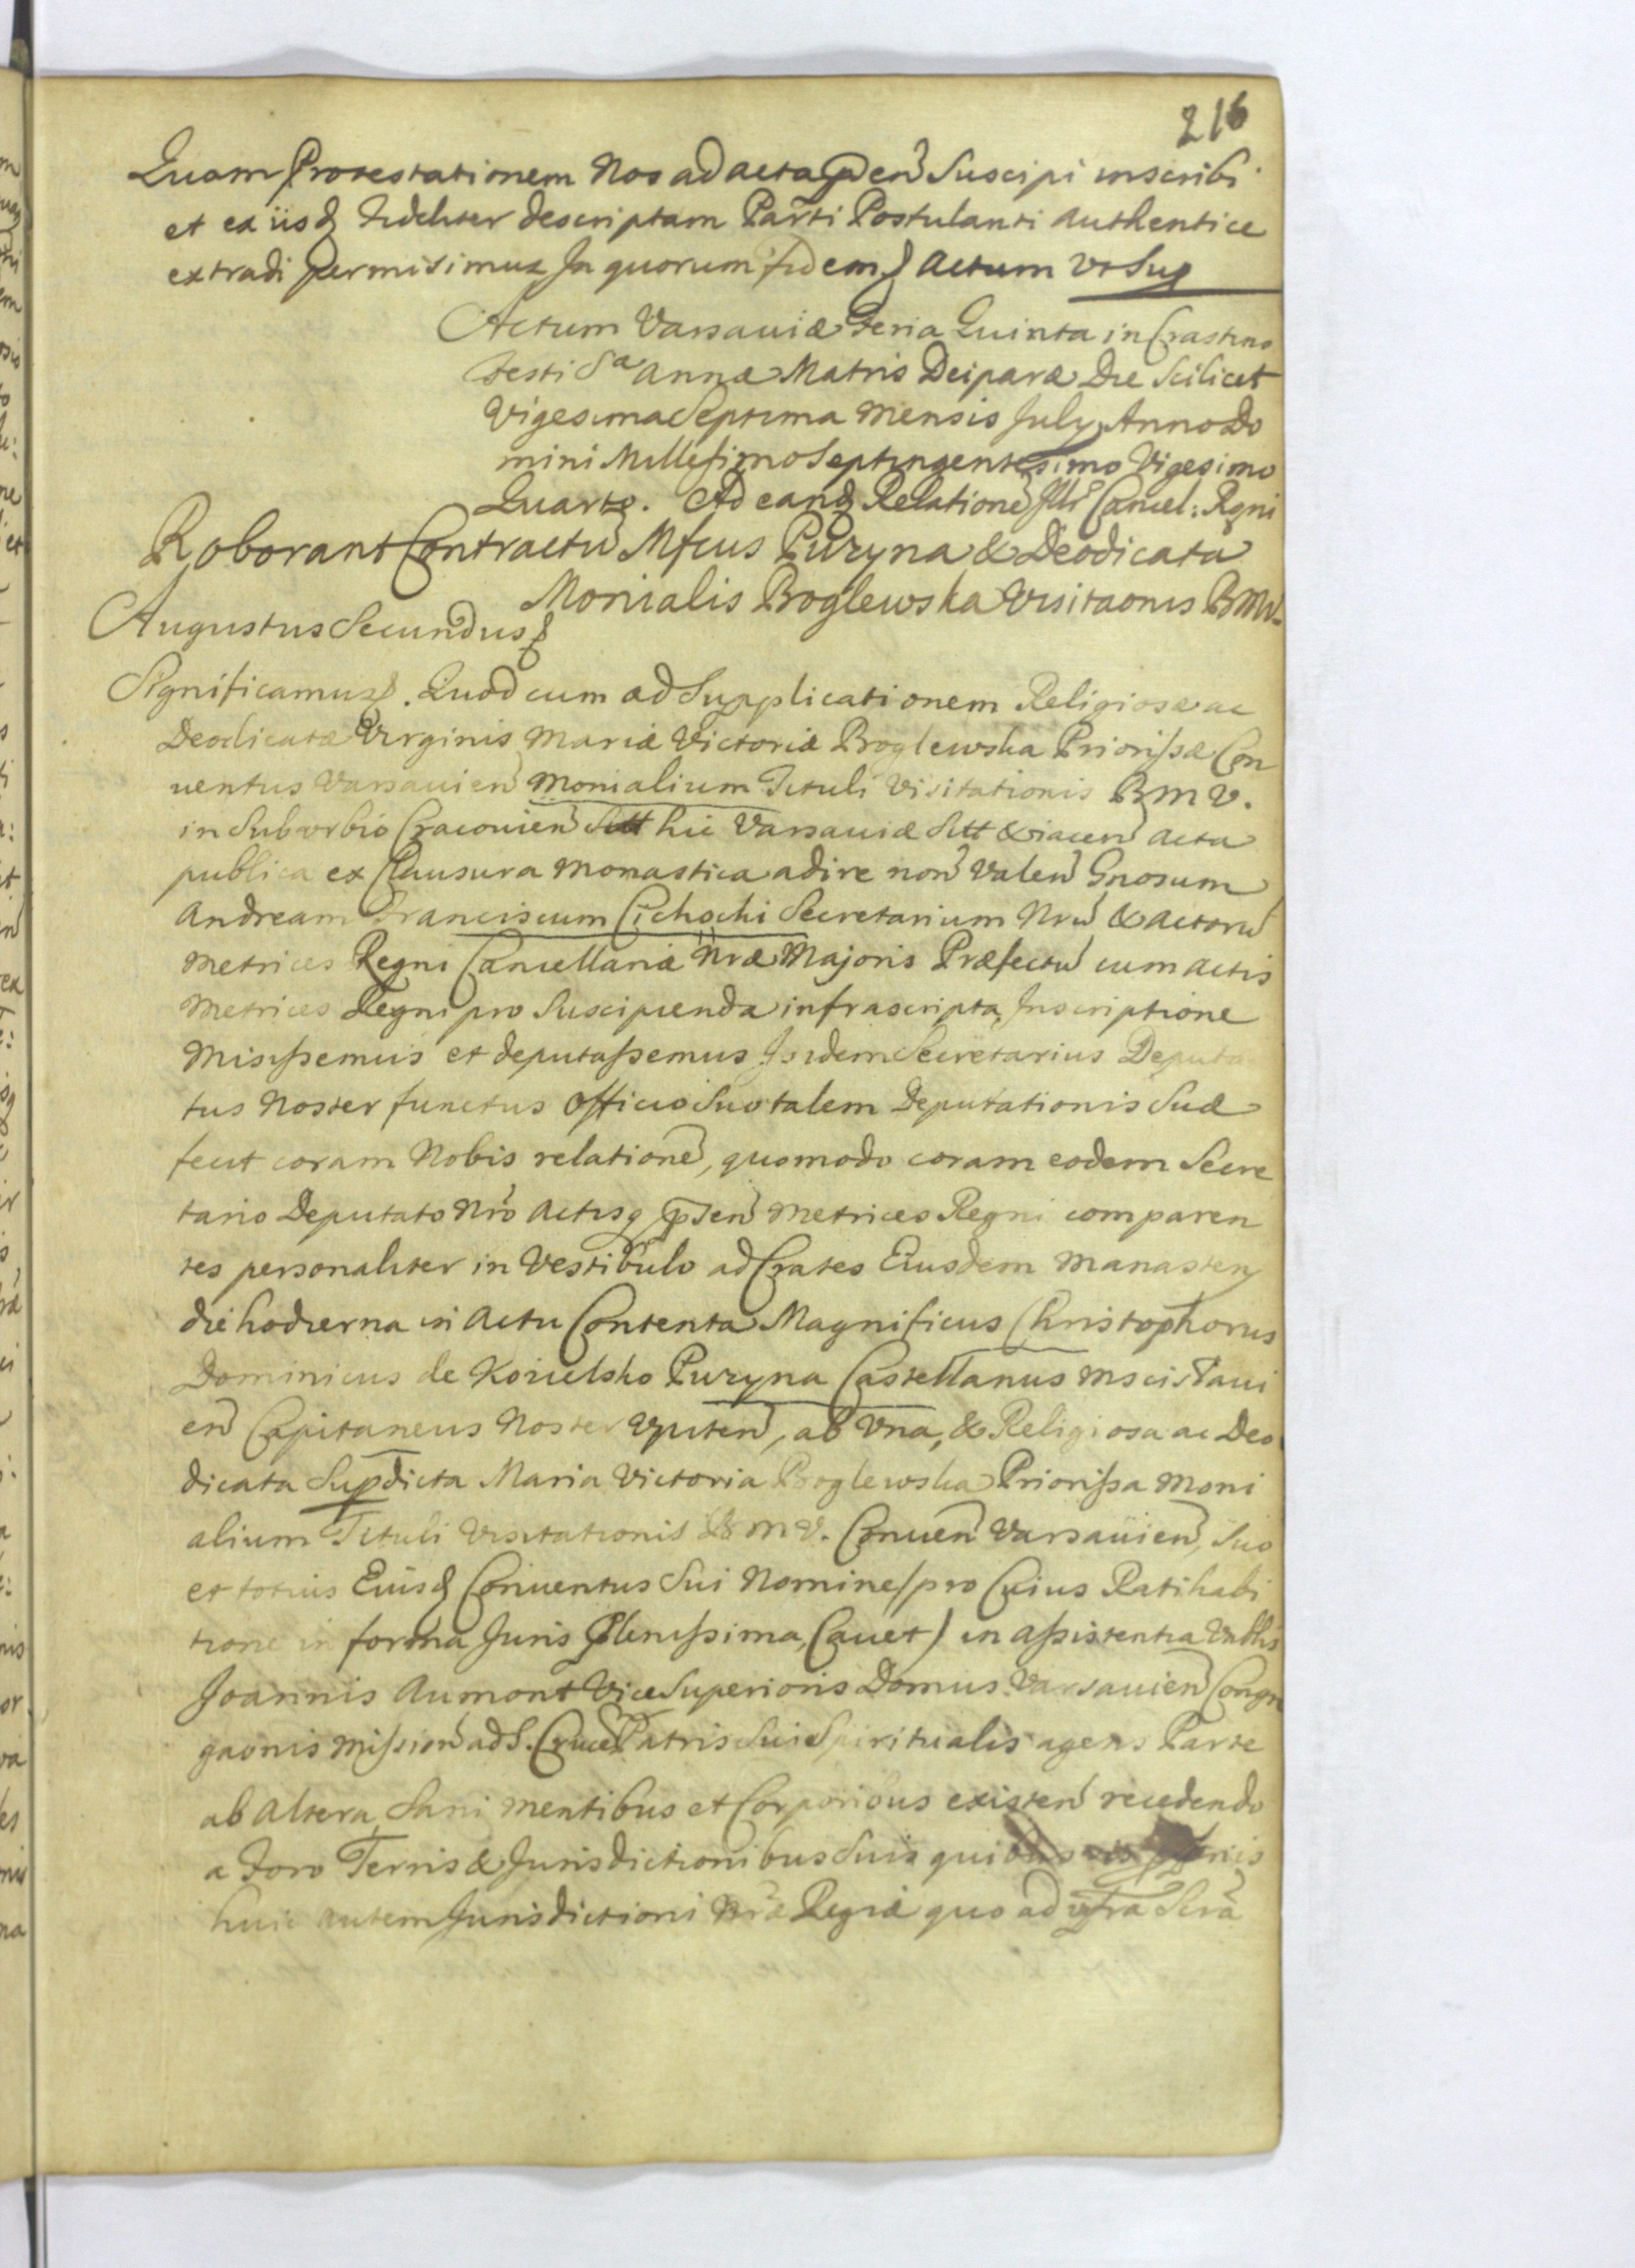 216
Quam Protestationem Nos ad acta pñeñ Suscipi inscribi
et ex iisq fideliter descriptam Parti Postulanti authentice
extradi permisimus In quorum fidem actum vt Sup
Actum Varsauiæ Feria Quinta in Crastino
festi Sæ Annæ Matris Deiparæ Die Scilicet
Vigesima Septima Mensis July Anno Do
mini Millesimo Septingentesimo Vigesimo
Quarto. Ad eand Relationē Illi Cancel: Rgni
Roborant Contractū Mfcus Puzyna & Deodicata
Monialis Boglewska Visitaonis BMV.
Augustus Secundus
Significamus. Quod cum ad Supplicationem Religiosæ ac
Deodicatæ Virginis Mariæ Victoriæ Boglewska Priorißæ Con
uentus Varsauien Monialium Tituli Visitationis B M V.
in Suburbio Cracouien hic Varsauiæ Sitt & iacen acta
publica ex Clausura Monastica adire non Valen Gnosum
Andream Franciscum Cichocki Secretarium Nrū & actorū
Metrices Regni Cancellariæ Nræ Majoris Præfectū cum actis
Metrices Regni pro Suscipienda infrascripta Inscriptione
Misißemus et deputaßemus Isidem Secretarius Deputa
tus Noster functus officio Suo talem Deputationis Suæ
fecit coram Nobis relationē, quomodo coram eodem Secre
tario Deputato Nro Actisq pñen Metrices Regni comparen
tes personaliter in Vestibulo ad Crates Eiusdem Manastery
die hodierna in Actu Contenta Magnificus Christophorus
Dominicus de Kozielsko Puzyna Castellanus Mscislaui
en Capitaneus Noster Vpiten, ab Vna, & Religiosa ac Deo
dicata Supdicta Maria Victoria Boglewska Priorißa Moni
alium Tituli Visitationis B M V. Conuen Varsauien, Suo
et totius Eiusq Conuentus Sui Nomine /pro Cuius Ratihabi
tione in forma Juris Plenißima, Cauet/ in aßistentia Vnblis
Joannis Aumont Vice Superioris Domus Varsauien Congr
gaonis Mißion ad S. Crucē Patris Sui Spiritualis agens Parte
ab Altera Sani mentibus et Corporibus existen recedendo
a Foro Terris & Jurisdictionibus Suis quibusuis proprijs
huic autem Jurisdictioni Nræ Regiæ quo ad infra Scra